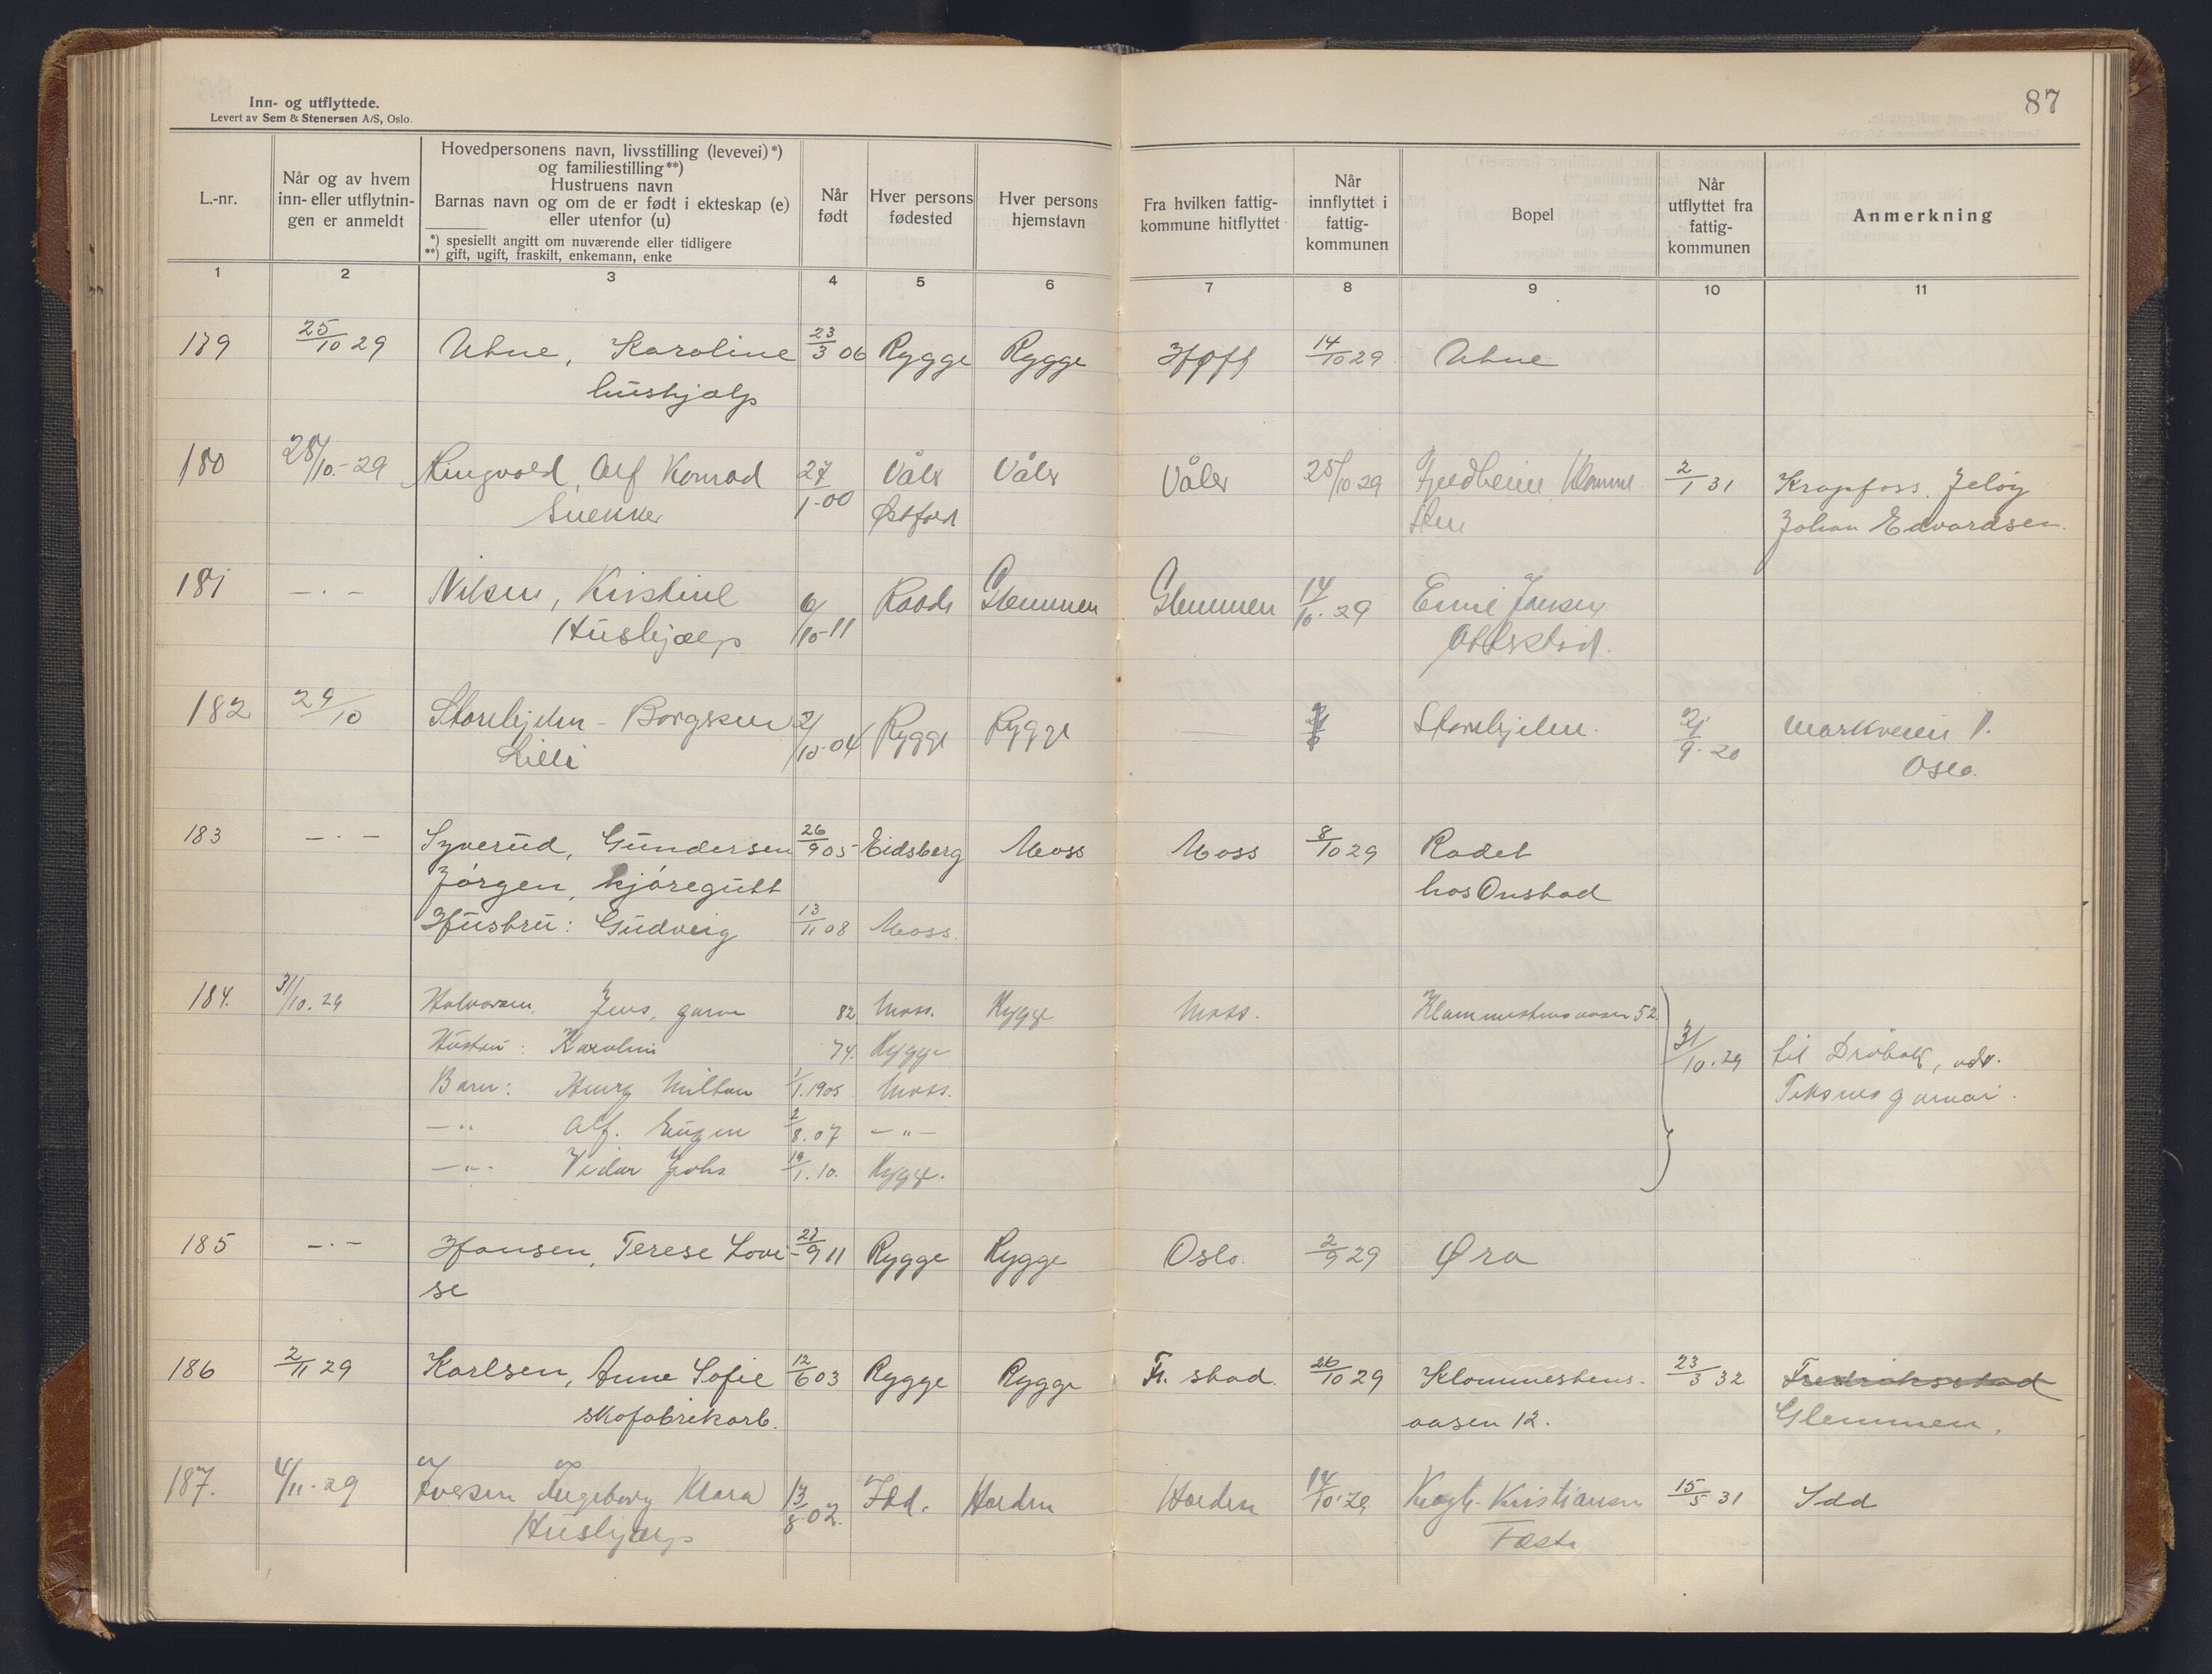 87
Inn- og utflyttede.
Levert av Sem & Stenersen A/S, Oslo.
L.-nr.
Når og av hvem
inn- eller utflytnin-
gen er anmeldt
Hovedpersonens navn, livsstilling (levevei)*)
og familiestilling**)
Hustruens navn
Barnas navn og om de er født i ekteskap (e)
eller utenfor (u)
*) spesielt angitt om nuværende eller tidligere
**) gift, ugift, fraskilt, enkemann, enke
Når
født
Hver persons
fødested
Hver persons
hjemstavn
Fra hvilken fattig-
kommune hitflyttet
Når
innflyttet i
fattig-
kommunen
Bopel
Når
utflyttet fra
fattig-
kommunen
Anmerkning
1 2 3 4 5 6 7 8 9 10 11
179 25/10 29 Uhne, Karoline 23/3 06 Rygge Rygge 14/10 29 Uhne
hushjælp
180 28/10-29 Ringvold, Alf Konrad 27/1-00 Våler Våler Våler 25/10 29 2/1 31 Krapfoss. Jeløy
Snekker Østfold Johan Edvardsen.
181 — · — Nilsen, Kristine 6/10-11 Raade Glemmen Glemmen 14/10-29
Hushjælp
182 29/10 Storehjelm - Borgsken 2/10-04 Rygge Rygge Storehjelm. 2/9-20 Markveien 1.
Lilli Oslo.
183 — · — Syverud, Gundersen 26/9 05 Eidsberg Moss Moss 8/10 29 Rådet
Jørgen, kjøregutt hos Onstad
Hustru: Gudveig 13/11 08 Moss.
184. 31/10.29 Halvorsen, Jens, garver 82 Moss. Rygge Moss. Klommestensaasen 52 31/10.29 til Drøbak, adr.
Hustru: Karoline 74. Rygge
Barn: Henry Milton 1/1.1905 Moss.
— " Alf. Eugen 2/8.07 — " —
— " — Vidar Johs 19/1.10. Rygge.
185 — · — Hansen, Terese Lovi- 27/9 11 Rygge Rygge Oslo. 2/9 29 Øra
se
186 2/11 29 Karlsen, Anne Sofie 12/6 03 Rygge Rygge Fr. stad. 26/10 29 Klommestens- 23/3 32 Fredriksstad
skofabrikarb. aasen 12. Glemmen.
187. 4/11-29 Iversen Ingeborg Klara 13/8-02. Idd. 14/10-29 15/5 31 Idd
Hushjælp